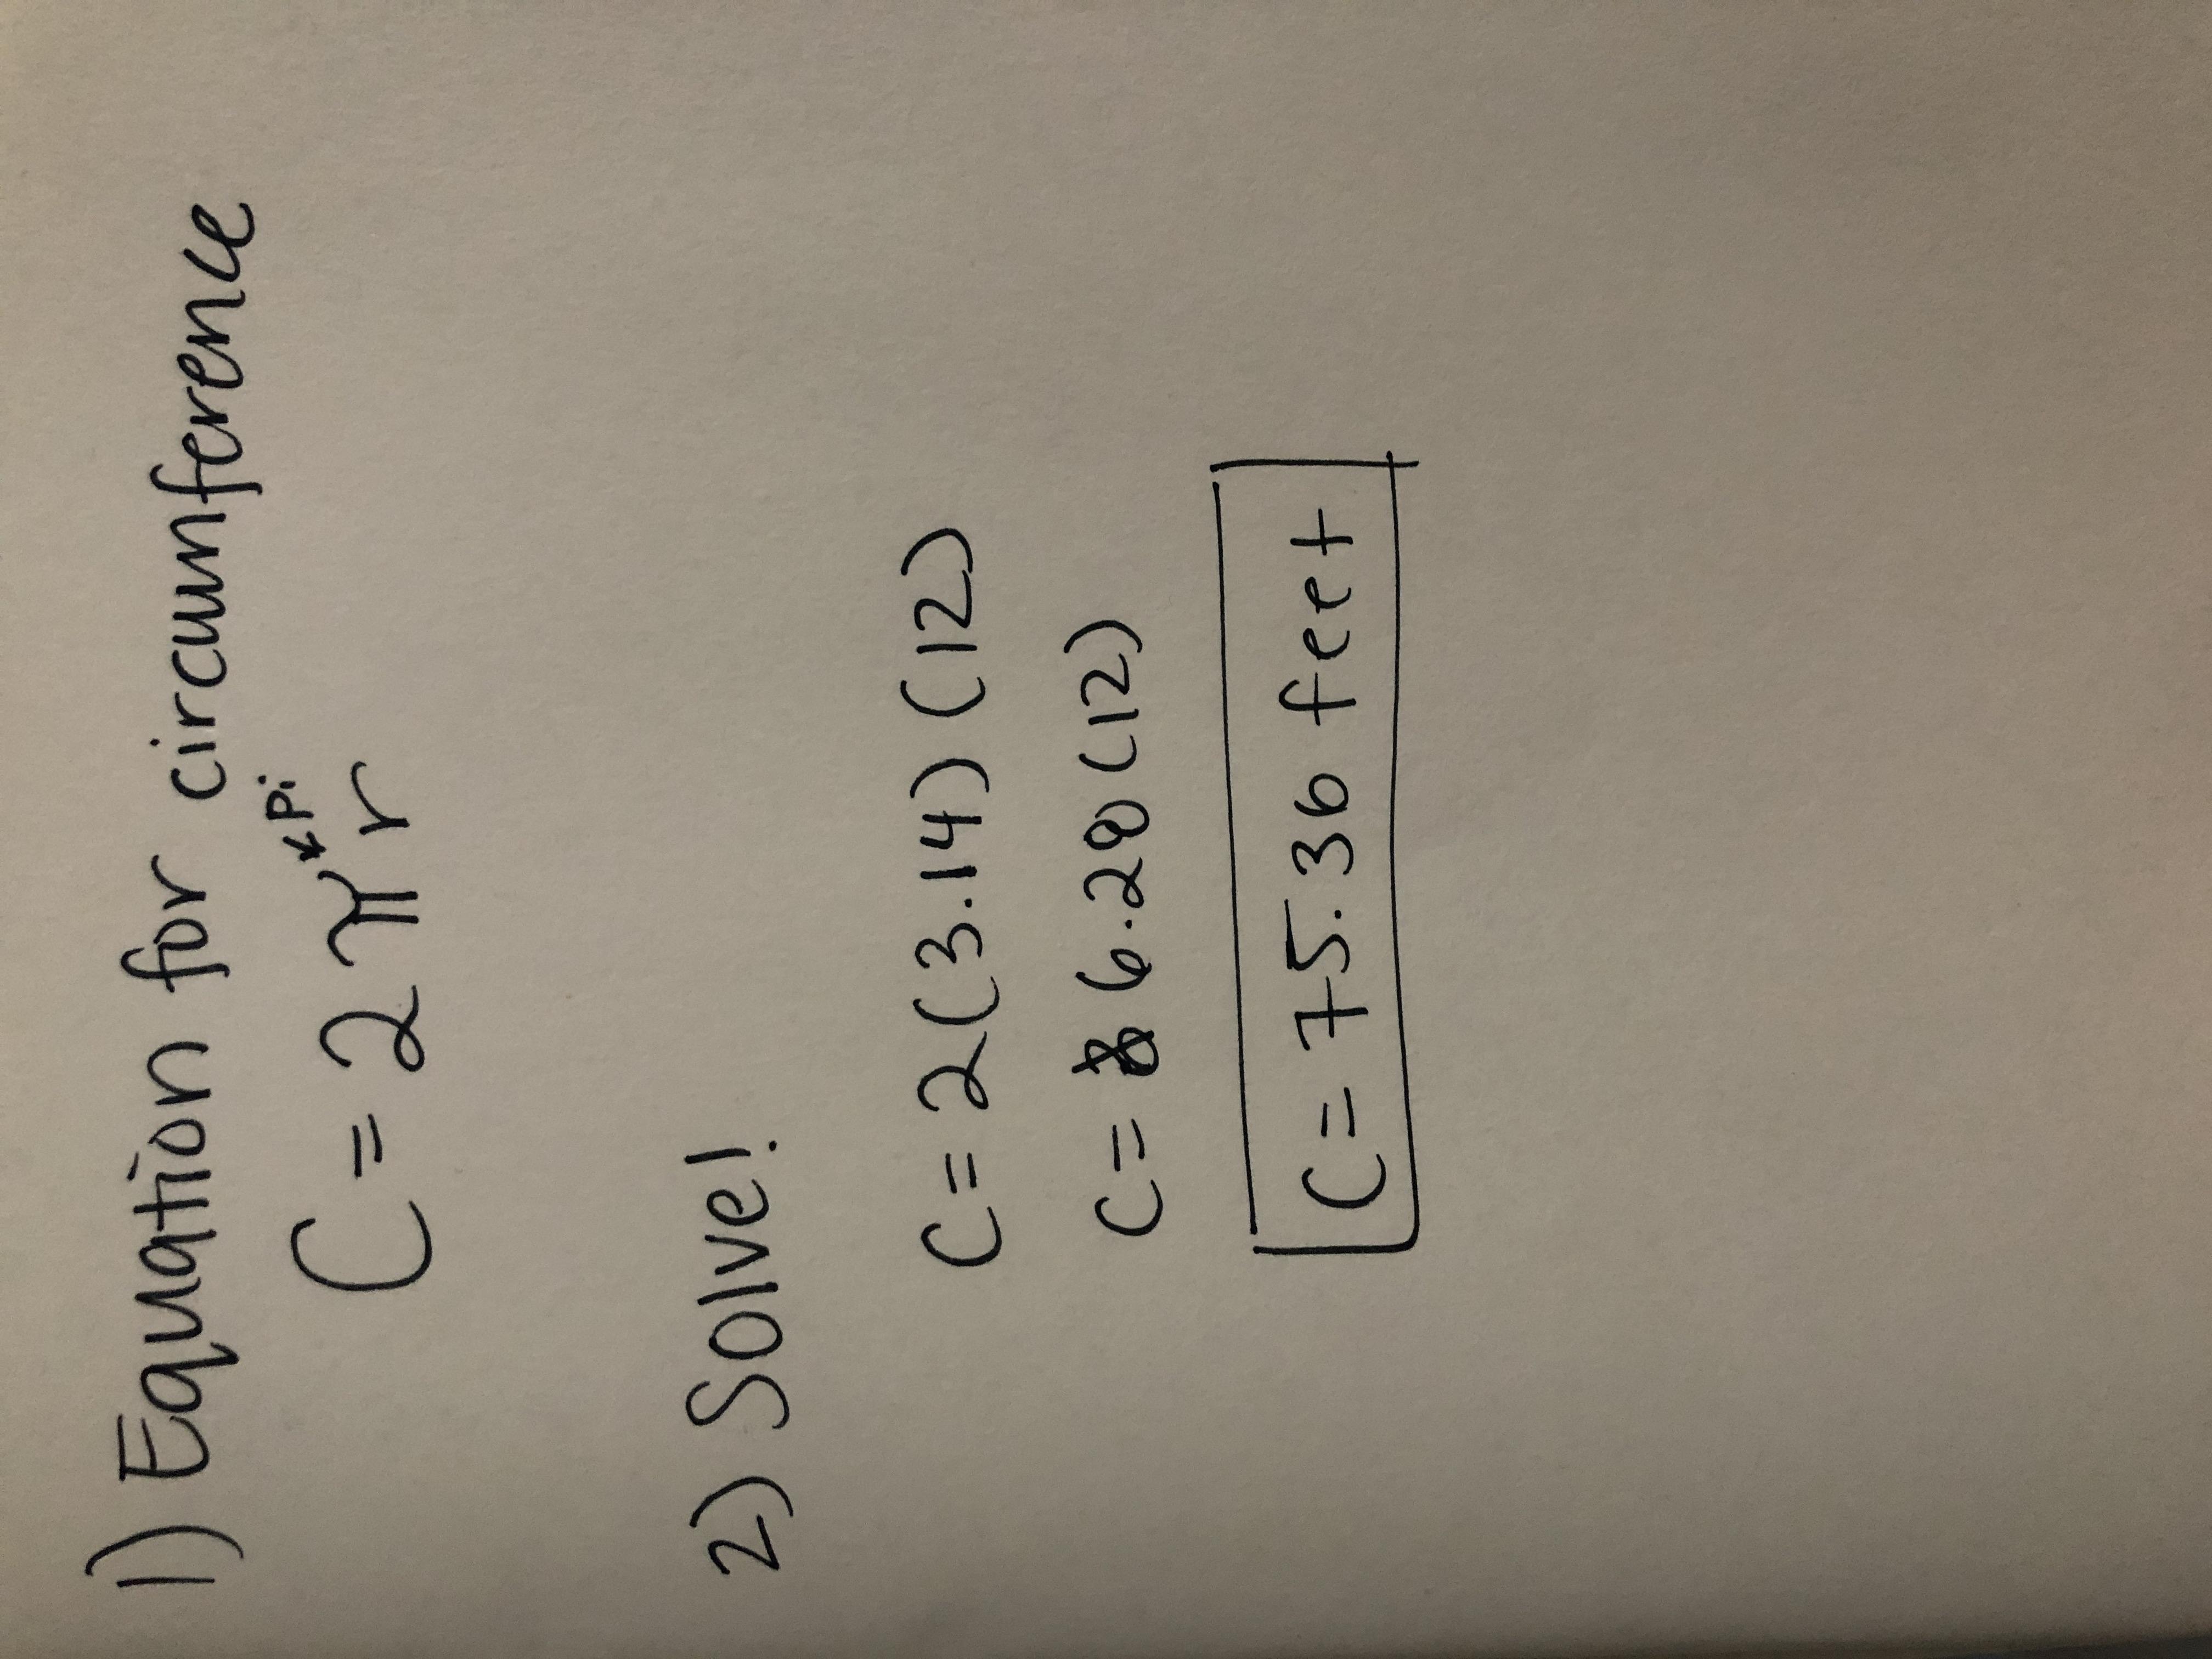 1) Equation for circumference
← Pi
C = 2πr
2) Solve!
C = 2(3.14)(12)
C = 6.28(12)
C = 75.36 feet